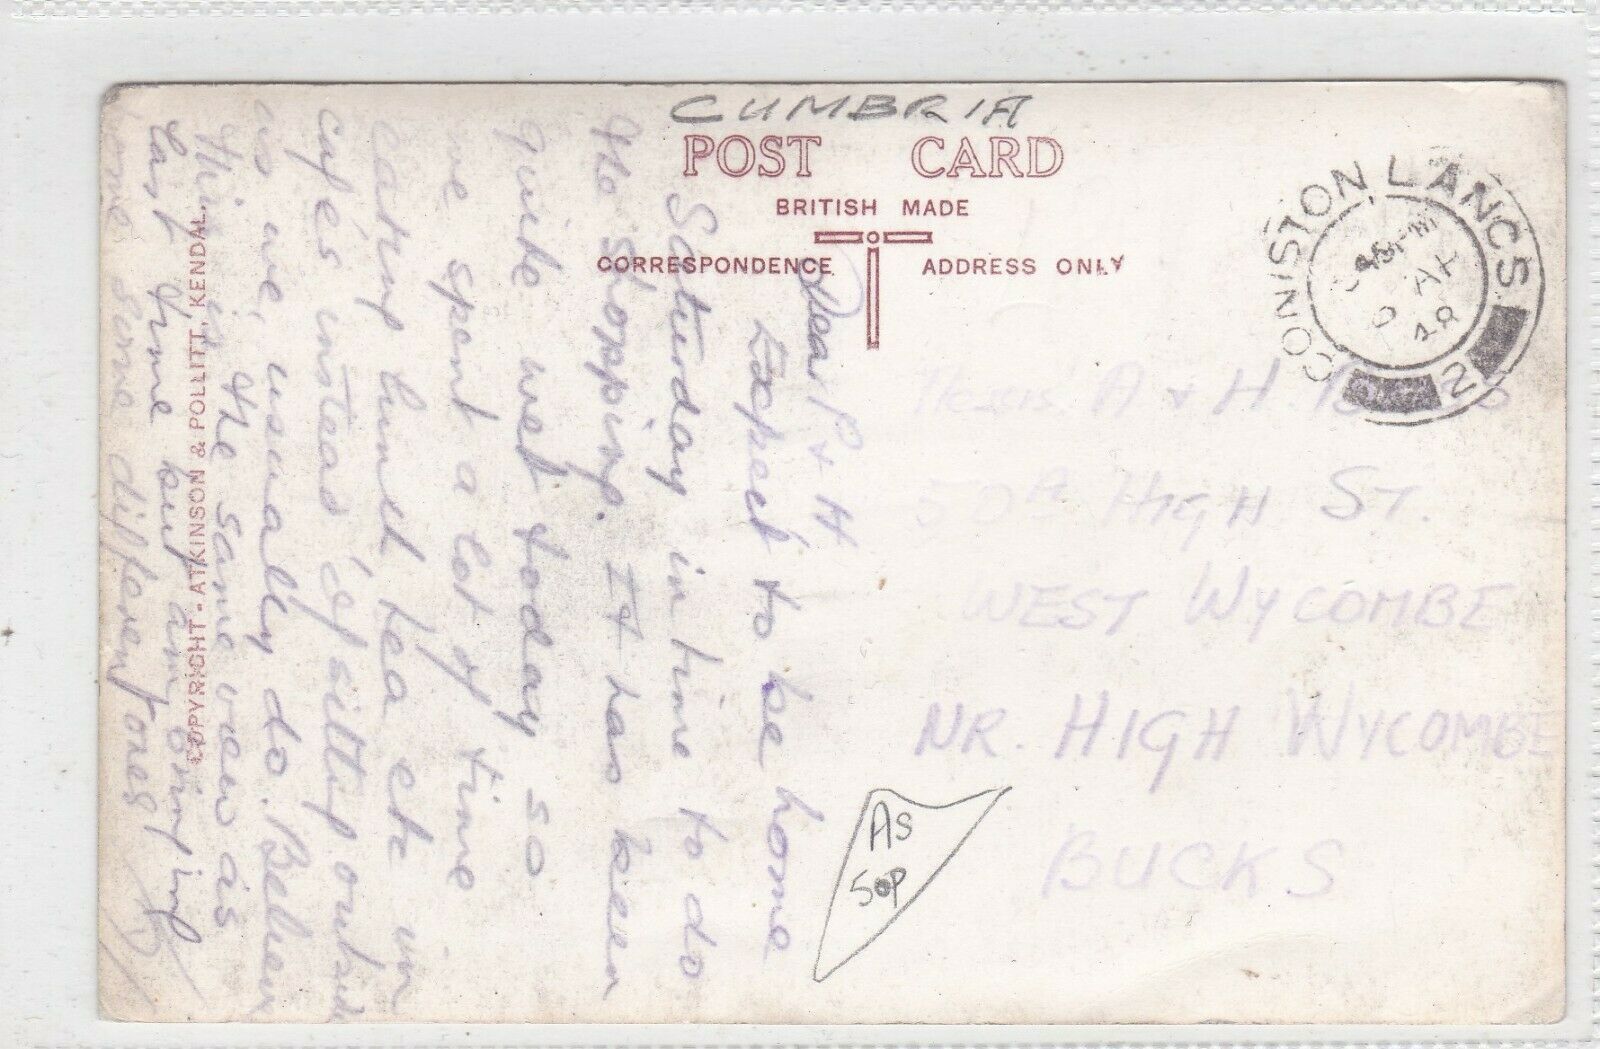 CUMBRIA
POST CARD
BRITISH MADE
CORRESPONDENCE ADDRESS ONLY
CONISTON LANCS
PM
48
2
A & H.
50A HIGH ST.
WEST WYCOMBE
NR. HIGH WYCOMBE
BUCKS
As
50p
Dear P & H
Expect to be home
Saturday in time to do
the shopping. It has been
quite wet today so
we spent a lot of time
eating lunch tea etc in
cafés instead of sitting outside
as we usually do.
This is the same view as
last time but am
some different ones
COPYRIGHT - ATKINSON & POLLITT, KENDAL.